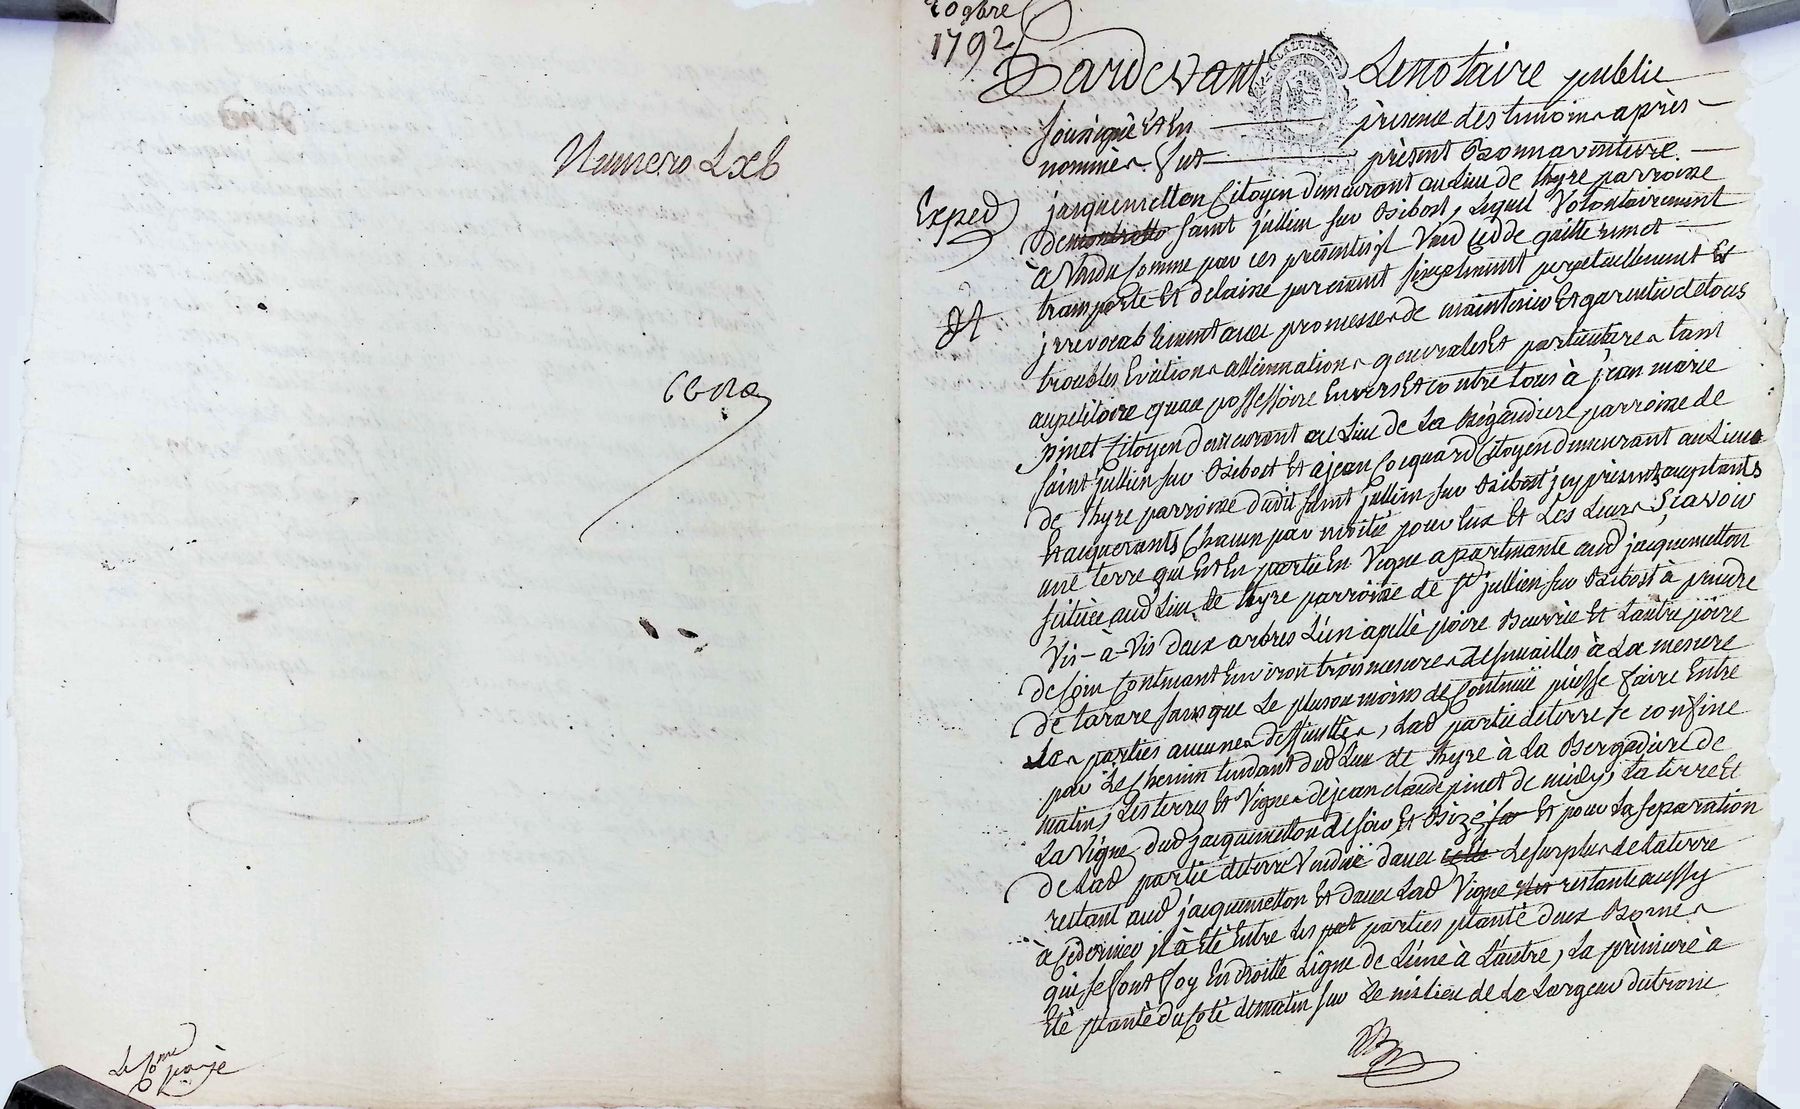 Numero Lxb
Le 10me page
9bre
1792
Pardevant Le notaire publie
sousigné Et En présence des temoins après
nommés fut présent Bonnaventure
Exped
jacquemetton Citoyen demeurant au Lieu de thyre parroisse
de saint jullien sur Bibost, Lequel Volontairement
à Vendu Comme par ces présentes jl Vend Cedde quitte remet
transporte Et delaisse purement simplement perpetuellement Et
jrrevocablement avec promesse de maintenir Et garentir de tous
troubles Evictions alliennations generales Et particulieres tant
au petitoire quau possessoire Envers Et contre tous à jean marie
pinet Citoyen demeurant au Lieu de La Bégaudiere parroisse de
saint jullien sur Bibost Et à jean Cocquard Citoyen demeurant au Lieu
de thyre parroisse dudit saint jullien sur Bibost jcy présents acceptants
Et acquerants Chacun par moitié pour Eux Et Les Leurs Sçavoir
une terre qui Est En partie En Vigne apartenante aud jacquemetton
située aud Lieu de thyre parroisse de st jullien sur Bibost à prendre
Vis-à-Vis deux arbres L'un apellé poire Beurrée Et L'autre poire
de Coin Contenant Environ trois mesures de semailles à La mesure
de tarare sans que Le plus ou moins de Contenüe puisse faire Entre
Les parties aucune difficultés, Lad partie de terre se confine
par Le Chemin tendant dud Lieu de thyre à La Bergadiere de
matin, Les terres Et Vignes de jean claude pinet de midy, La terre Et
La Vigne dud jacquemetton de soir Et Bize Et pour La separation
de Lad partie de terre Venduë davec Le surplus de la terre
restant aud jacquemetton Et davec Lad Vigne restante aussy
à Ce dernier jl à Eté Entre Les parties planté deux Bornes
qui se font foy En droitte Ligne de L'une à L'autre, La premiere à
Eté planté du Coté de matin sur Le milieu de La Largeur du tronc